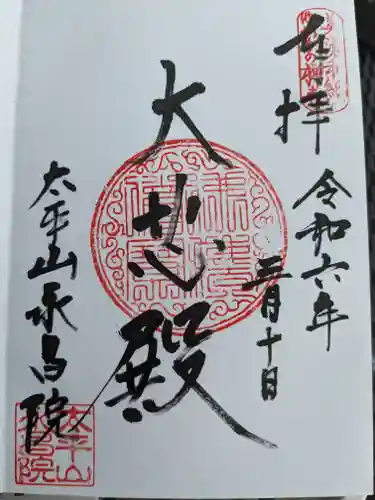 奉拝
令和六年
三月十日
大悲殿
太平山永昌院
太平山
永昌院